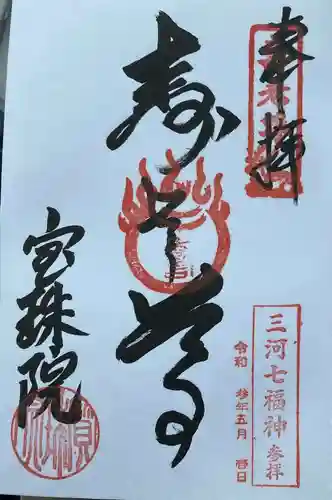 奉拝
三河七福神参拝
令和 参年五月 日
寿老尊
宝珠院